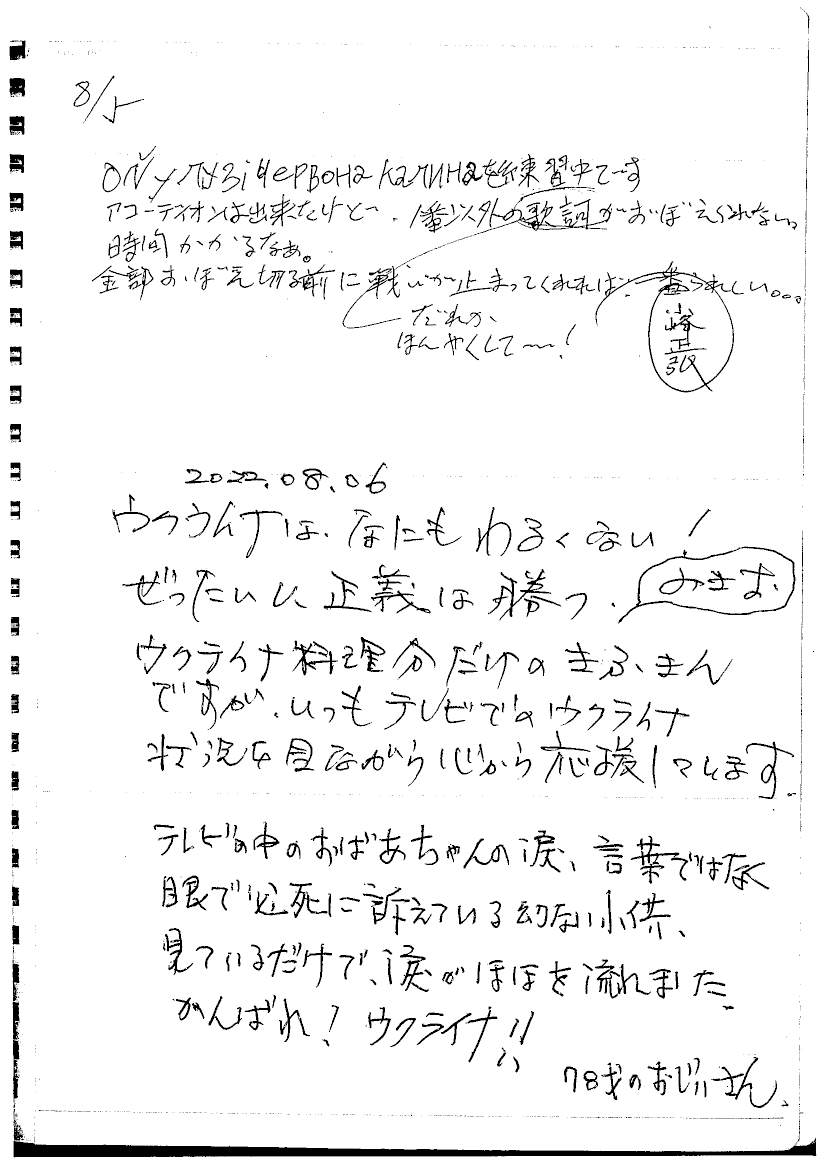 8/5
Ой у лузі червона калинаを練習中です
アコーディオンは出来たけど、1番以外の歌詞がおぼえられない。
時間かかるなぁ。
全部おぼえ切る前に戦いが止まってくれれば、一番うれしい。。。
だれか
ほんやくして〜〜!
正弘
2022.08.06
ウクライナは、なにもわるくない!
ぜったいに、正義は勝つ.
みきお.
ウクライナ料理分だけのきふ、きん
ですが、いつもテレビでのウクライナ
状況を見ながら心から応援してます.
テレビの中のおばあちゃんの涙、言葉ではなく
眼で必死に訴えている幼ない小供、
見ているだけで、涙がほほを流れました.
がんばれ!ウクライナ!!
78才のおじいさん.